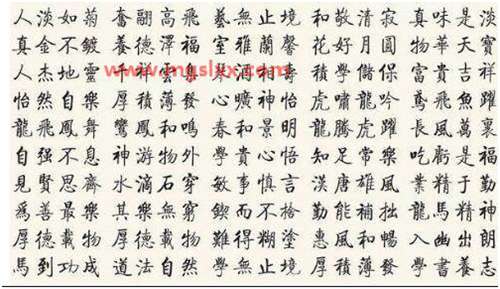 人淡如菊 奮翮高飛 藝無止境 和敬清寂 真味是淡
真金不鍍 養德澤福 室雅蘭馨 花好月圓 物華天寶
人杰地靈 富貴吉祥
www.mgslyx.com
怡然自樂 厚積薄發 心曠神怡 虎嘯龍吟 鳶飛魚躍
龍飛鳳舞 鸞鳳和鳴 春和景明 龍騰虎躍 長風萬裏
自强不息 神游物外 學貴心悟 知足常樂 吃虧是福
見賢思齊 水滴石穿 敏事慎言 漢唐雄風 業精于勤
爲善最樂 其樂無窮 鍥而不捨 勤能補拙 龍馬精神
厚德載物 厚德載物 難得糊塗 惠風和暢 入幽出朗
馬到功成 道法自然 學無止境 厚積薄發 學書養志